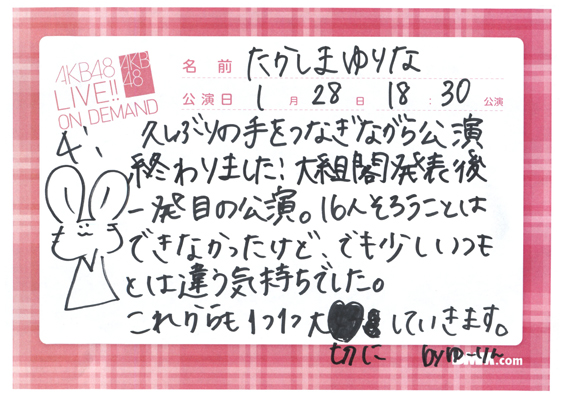 AKB48
LIVE!!
ON DEMAND
AKB
48
名前 たかしまゆりな
公演日 1月28日 18:30公演
久しぶりの手をつなぎながら公演
終わりました！大組閣発表後
一発目の公演。16人そろうことは
できなかったけど、でも少しいつも
とは違う気持ちでした。
これからも1つ1つ大
していきます。
切に
byゆーりん
.com